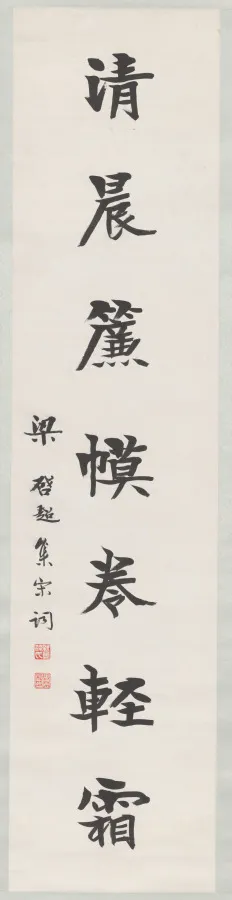 清晨簾幙卷軽霜
梁啓超集宋詞